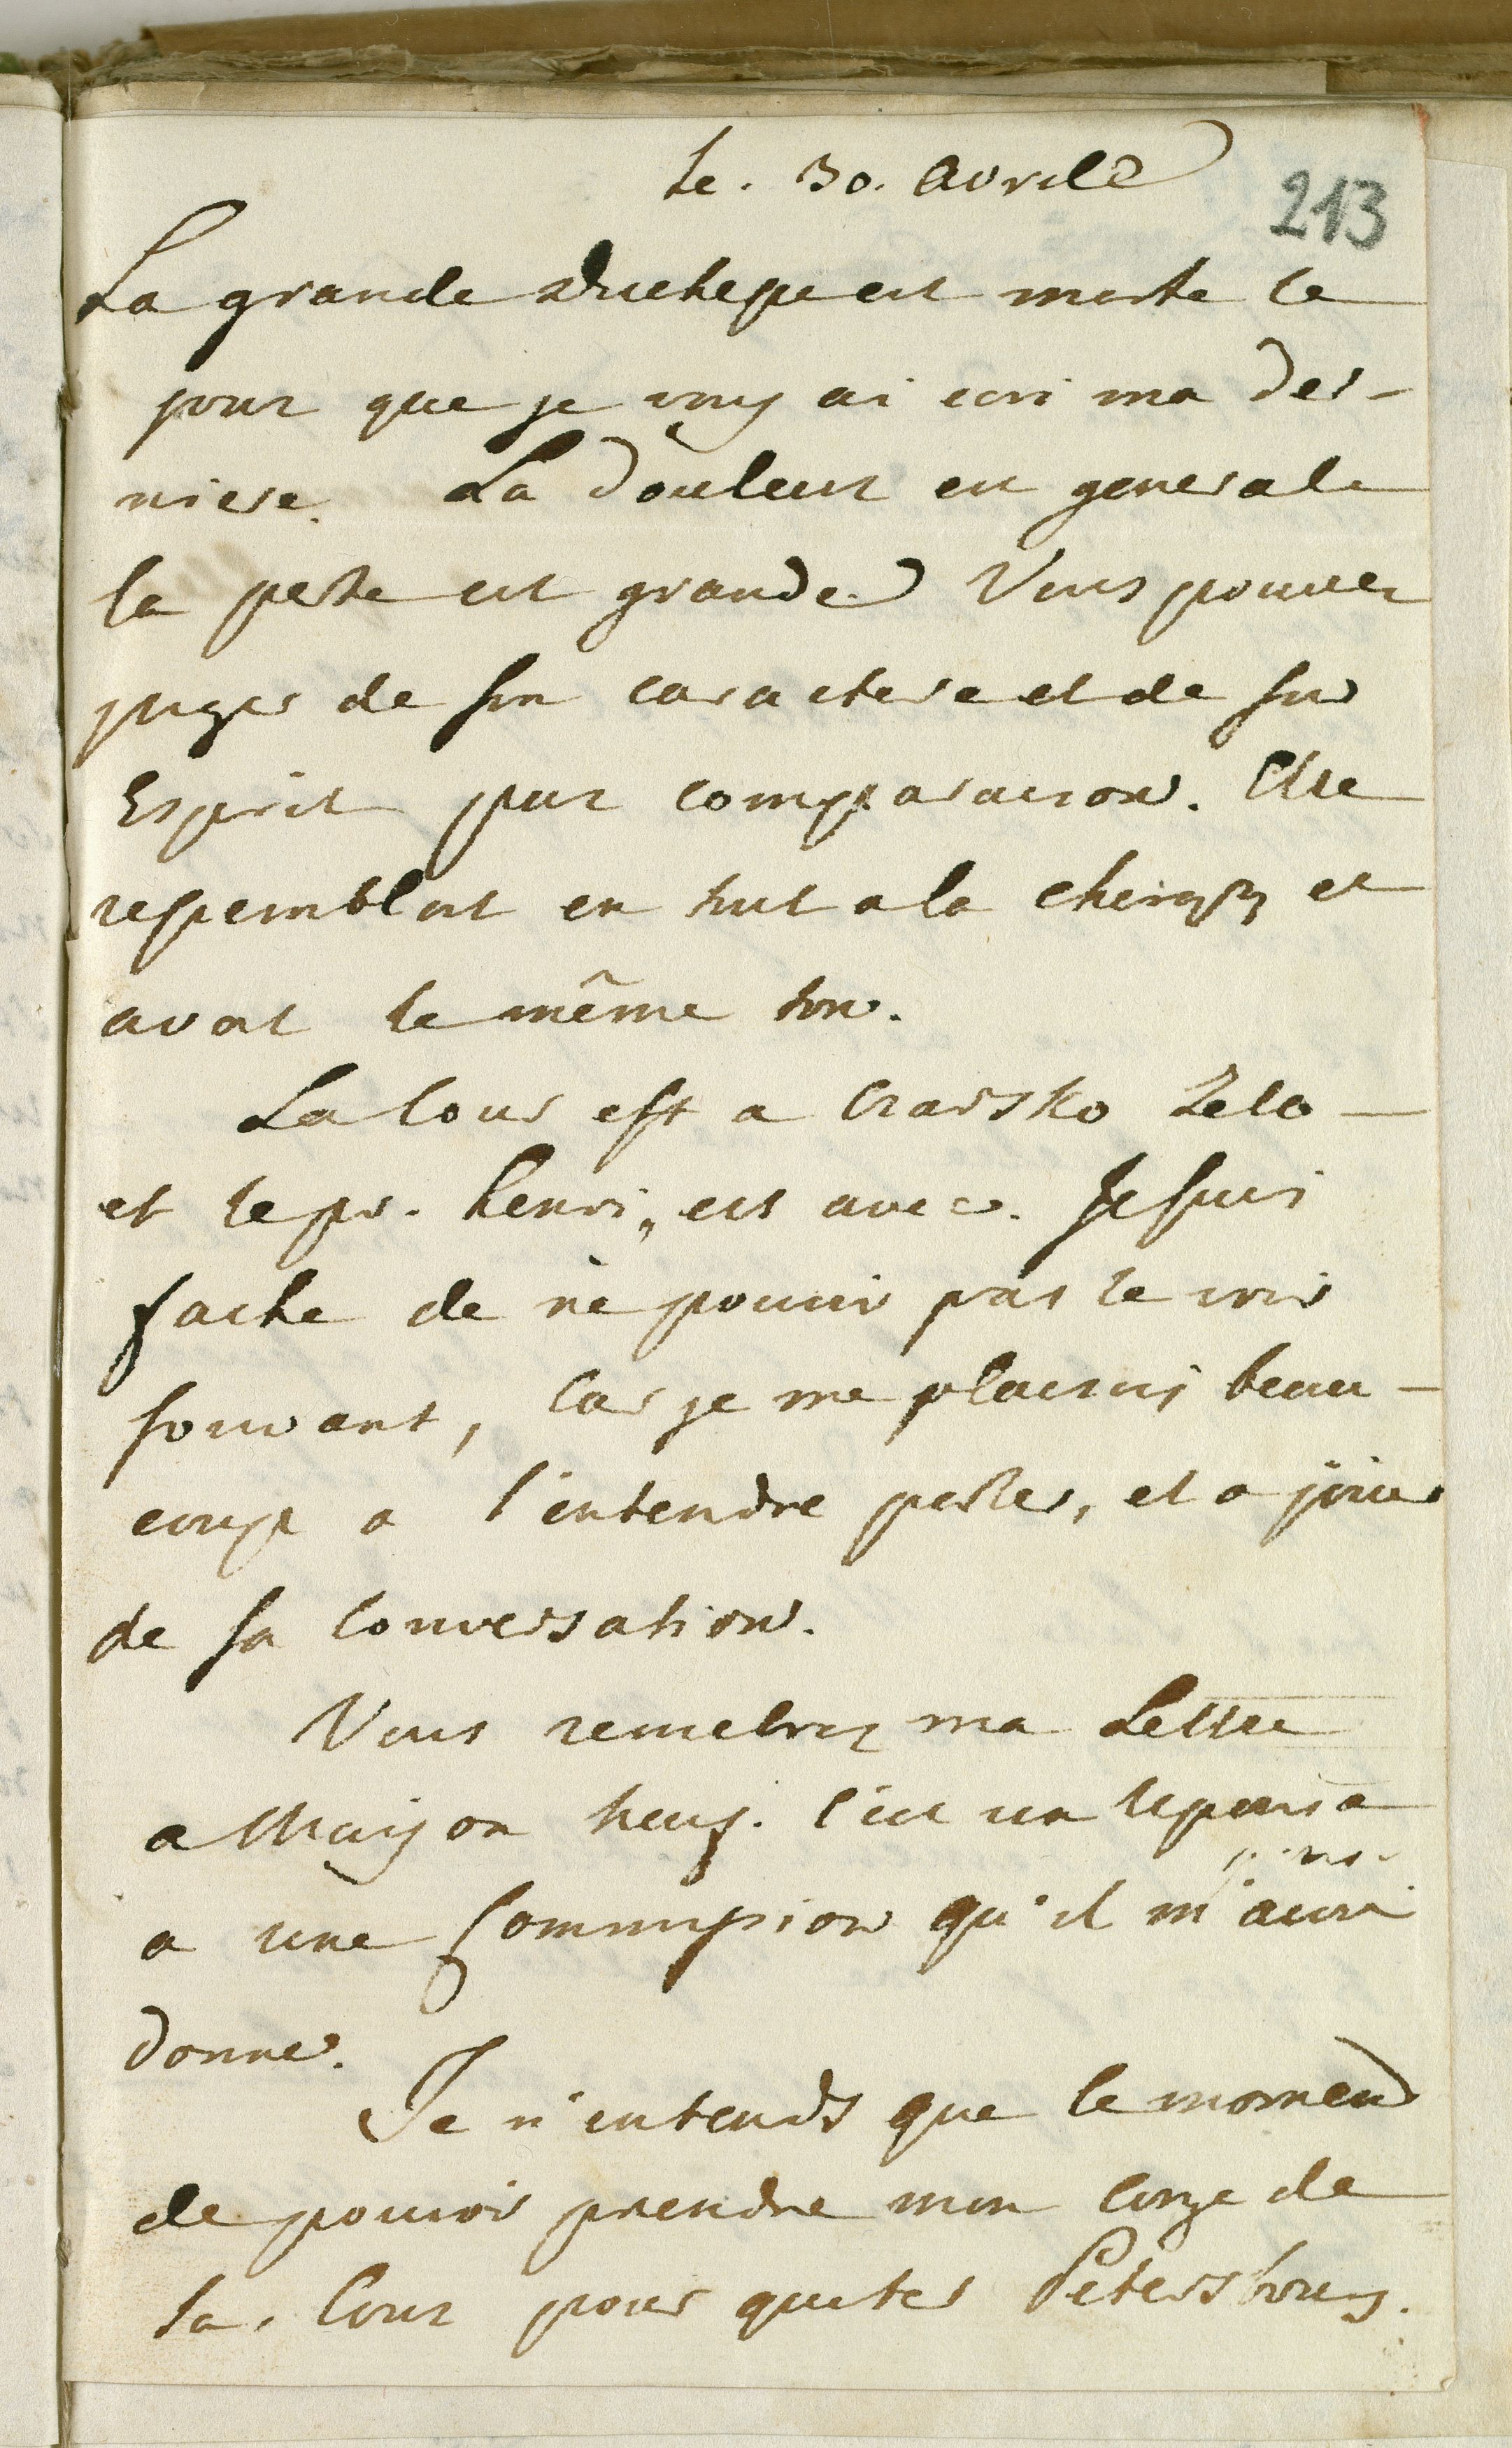 Le. 30. Avrile
213
La grande Duchesse est morte le
jour que je vous ai ecri ma der-
niere. La douleur est generale
la perte est grande. Vous pouvez
juger de son caractere et de son
Esprit par comparaison. Elle
ressemblait en tout a la et
avoit le même ton.
La Cour est a Czarsko Zelo
et le pr. Henri, est avec. Je suis
fache de ne pouvoir pas le voir
souvant, car je me plaisois beau-
coup a l'entendre perler, et a jouir
de sa conversation.
Vous remetrez ma Lettre
a Maison neuf. C'est un
a une Commission qu'il m'avoi
donné.
Je n'entends que le momend
de pouvoir prendre mon conge de
la Cour pour quiter Petersbourg.